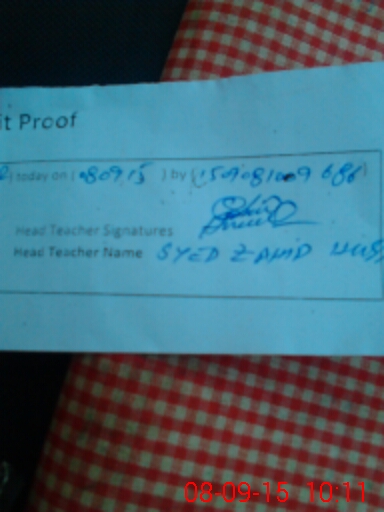 it Proof
) today on ( 080915 ) by ( 1509081009 686 )
Head Teacher Signatures
Head Teacher Name SYED ZAHID HUS
08-09-15 10:11